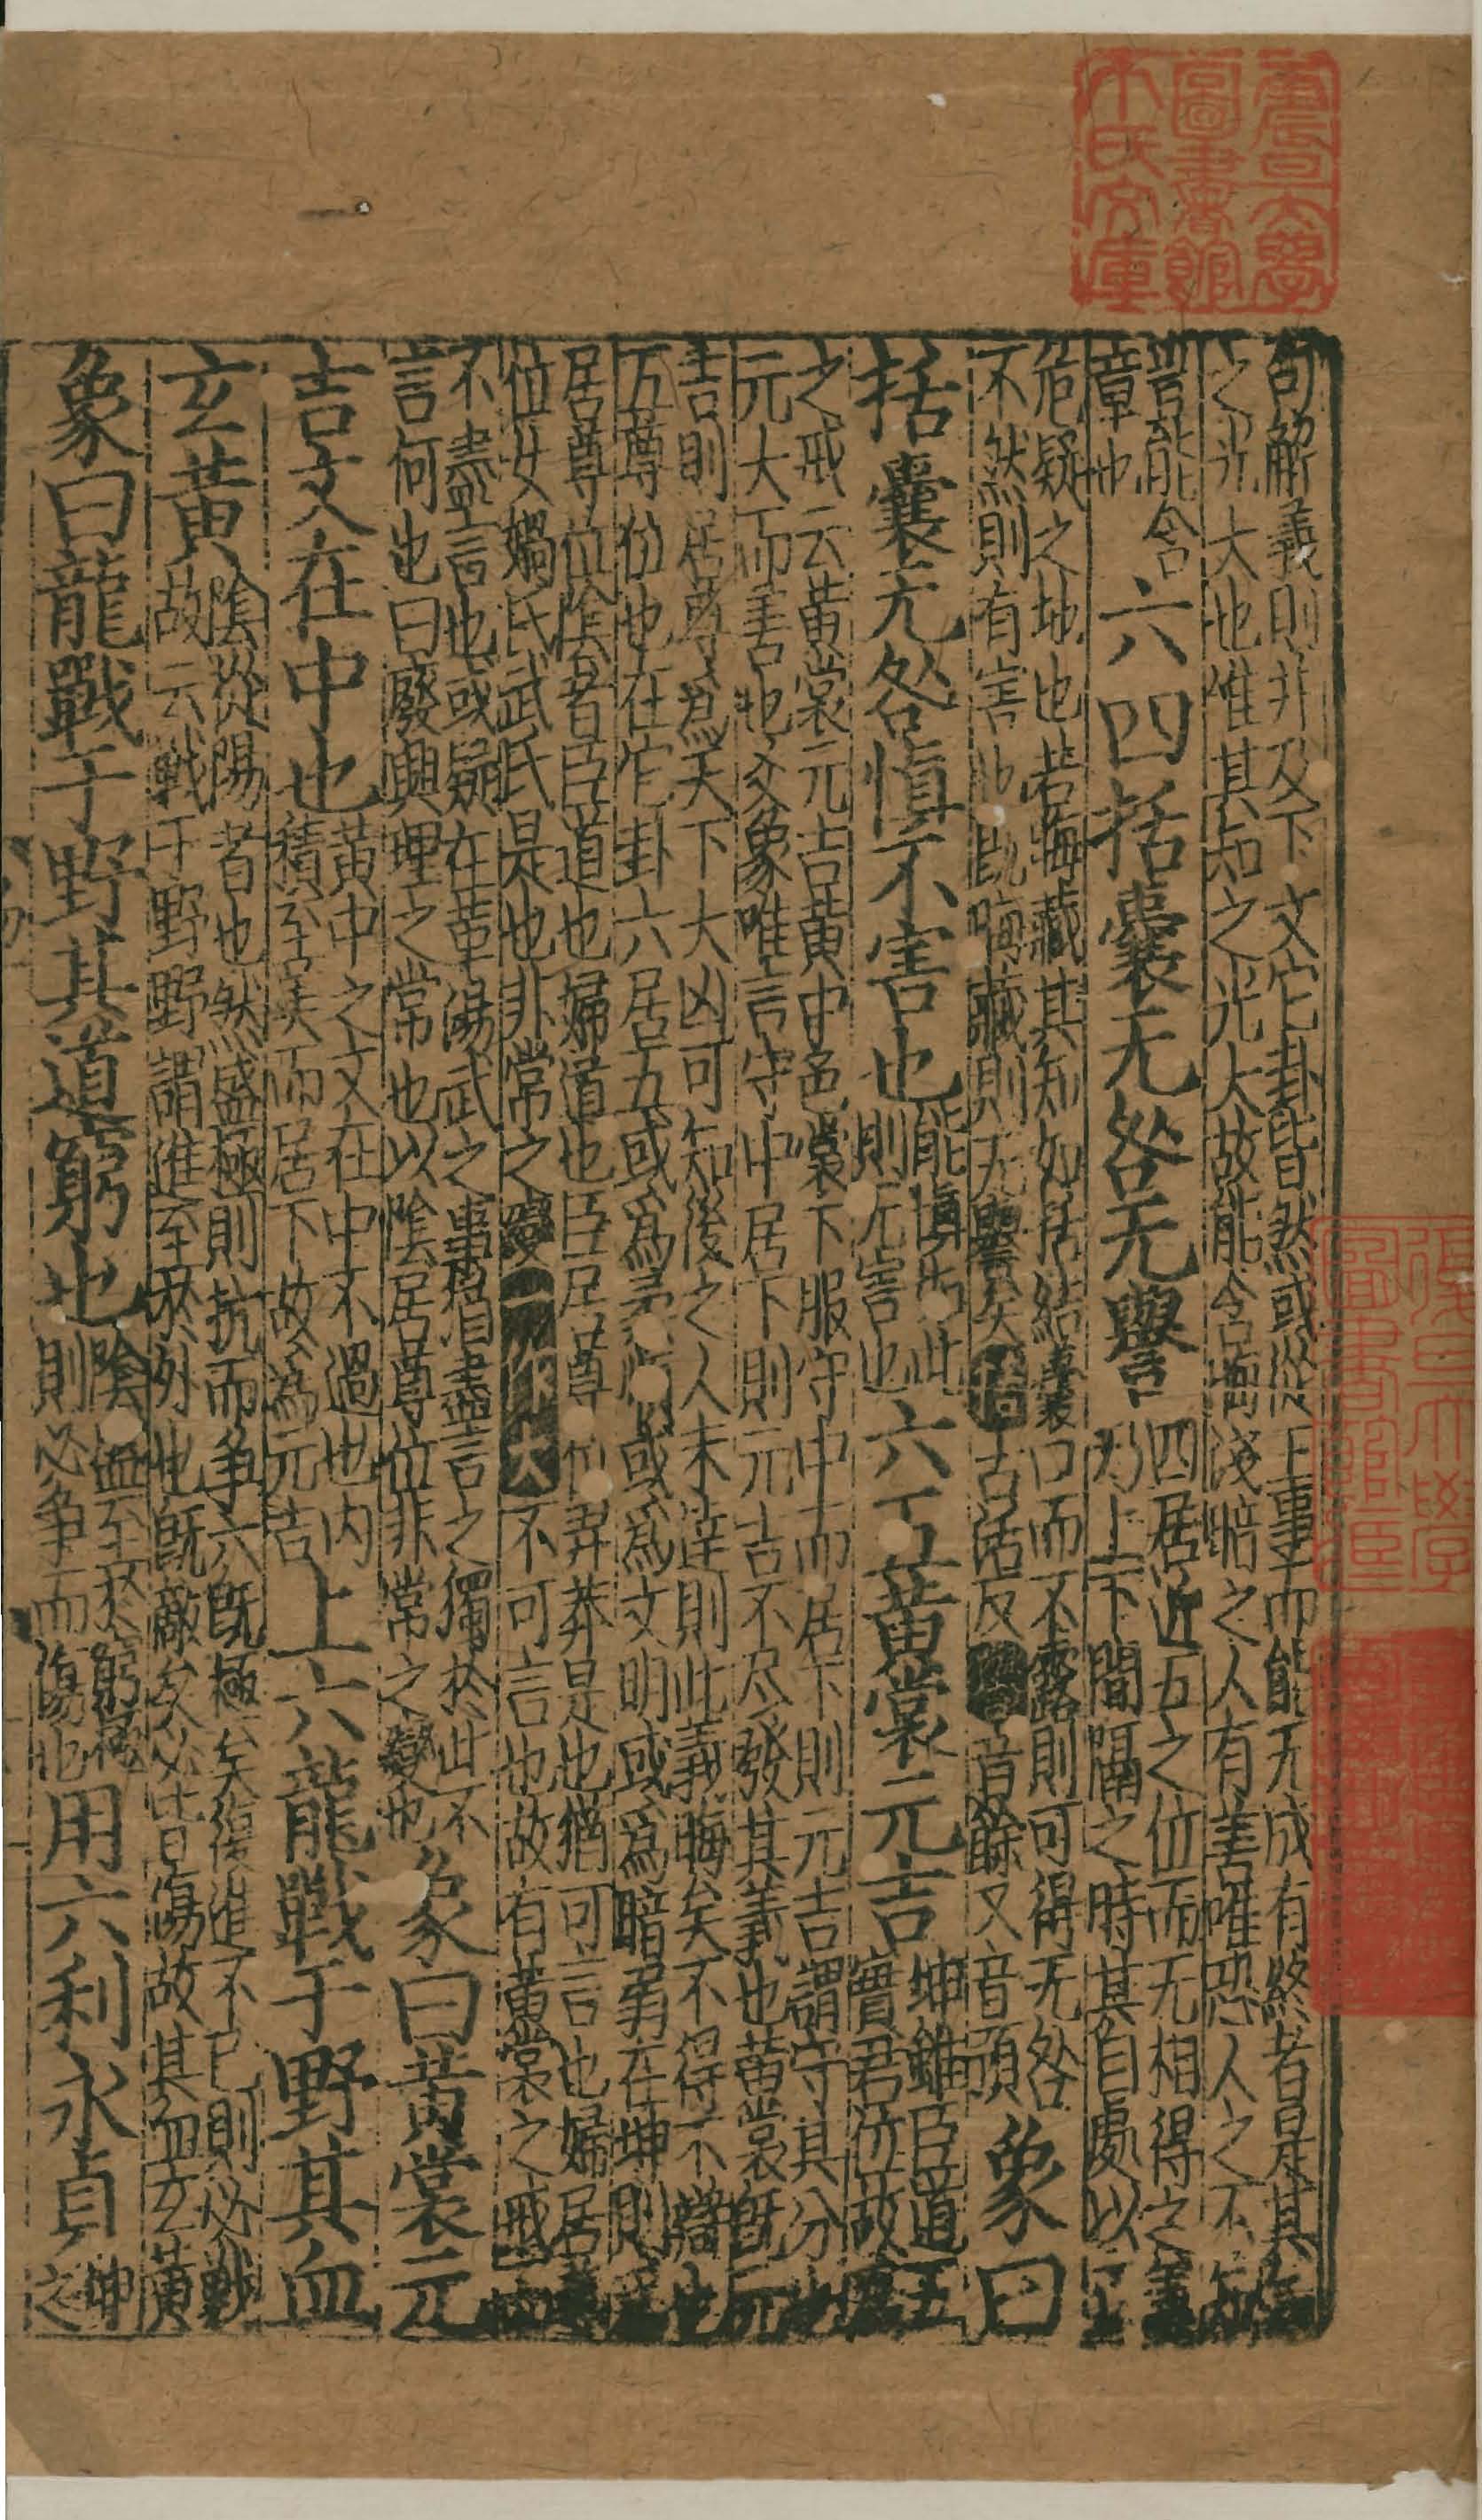 句解義則并及下文它卦皆然或從上事而能无成有終者是其知
之光大也惟其知之光大故能含晦淺暗之人有善唯恐人之不知
豈能含
章也
六四括囊无咎无譽
四居近五之位而无相得之義
乃上下間隔之時其自處以正
危疑之地也若晦藏其知如括結囊口而不露則可得无咎
不然則有害也既晦藏則无譽矣
古活反
音餘又音預
象曰
括囊无咎慎不害也
能慎如此
則无害也
六五黃裳元吉
坤雖臣道五
實君位故爲
之戒云黃裳元吉黃中色裳下服守中而居下則元吉謂守其分也
元大而善也爻象唯言守中居下則元吉不尽發其義也黃裳既元
吉則居尊爲天下大凶可知後之人未達則此義晦矣不得不辯也
五尊位也在它卦六居五或爲柔順或爲文明或爲暗弱在坤則爲
居尊位陰者臣道也婦道也臣居尊位羿莽是也猶可言也婦居尊
位女媧氏武氏是也非常之變
不可言也故有黃裳之戒而
不盡言也或疑在革湯武之事猶盡言之獨於此不
言何也曰廢興理之常也以陰居尊位非常之變也
象曰黃裳元
吉文在中也
黃中之文在中不過也内
積至美而居下故爲元吉
上六龍戰于野其血
玄黃
陰從陽者也然盛極則抗而争六既極矣復進不已則必戰
故云戰于野野謂進至於外也既敵矣必皆傷故其血玄黃
象曰龍戰于野其道窮也
陰盛至於窮極
則必争而傷也
用六利永貞
坤
之